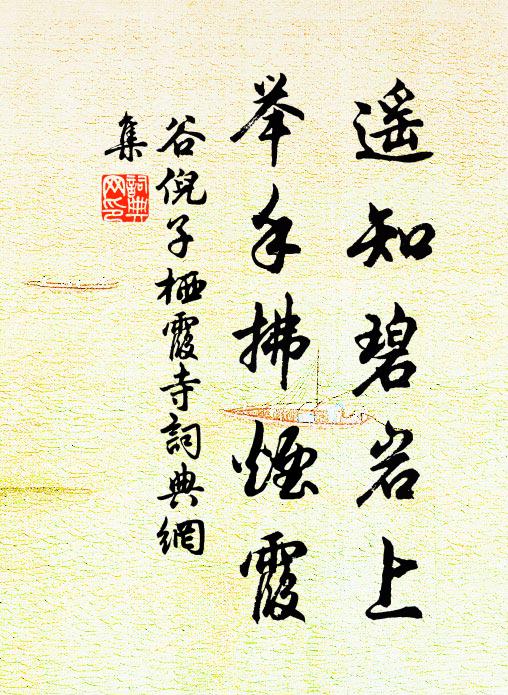 遥知碧岩上
举手拂烟霞
谷倪子栖霞寺詞典網
集
詞典
网印